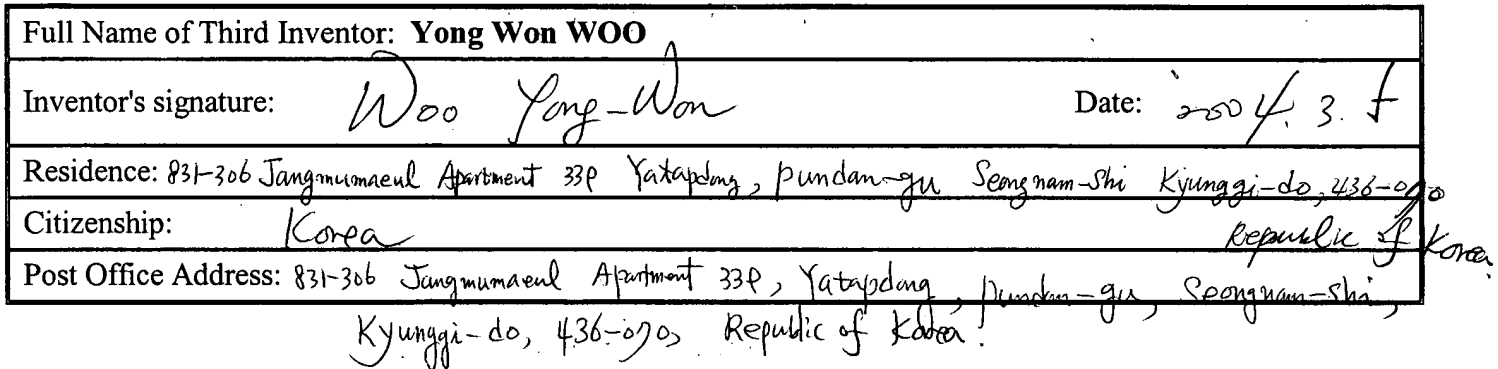 Full Name of Third Inventor: Yong Won WOO
Inventor's signature: Woo Yong-Won Date: 2004. 3. 5
Residence: 831-306 Jangmumaeul Apartment 339 Yatapdong, pundan-gu Seongnam-Shi Kyunggi-do, 436-070
Citizenship: Korea Republic of Korea.
Post Office Address: 831-306 Jangmumaeul Apartment 339, Yatapdong, pundan-gu, Seongnam-shi,
Kyunggi-do, 436-070, Republic of Korea.